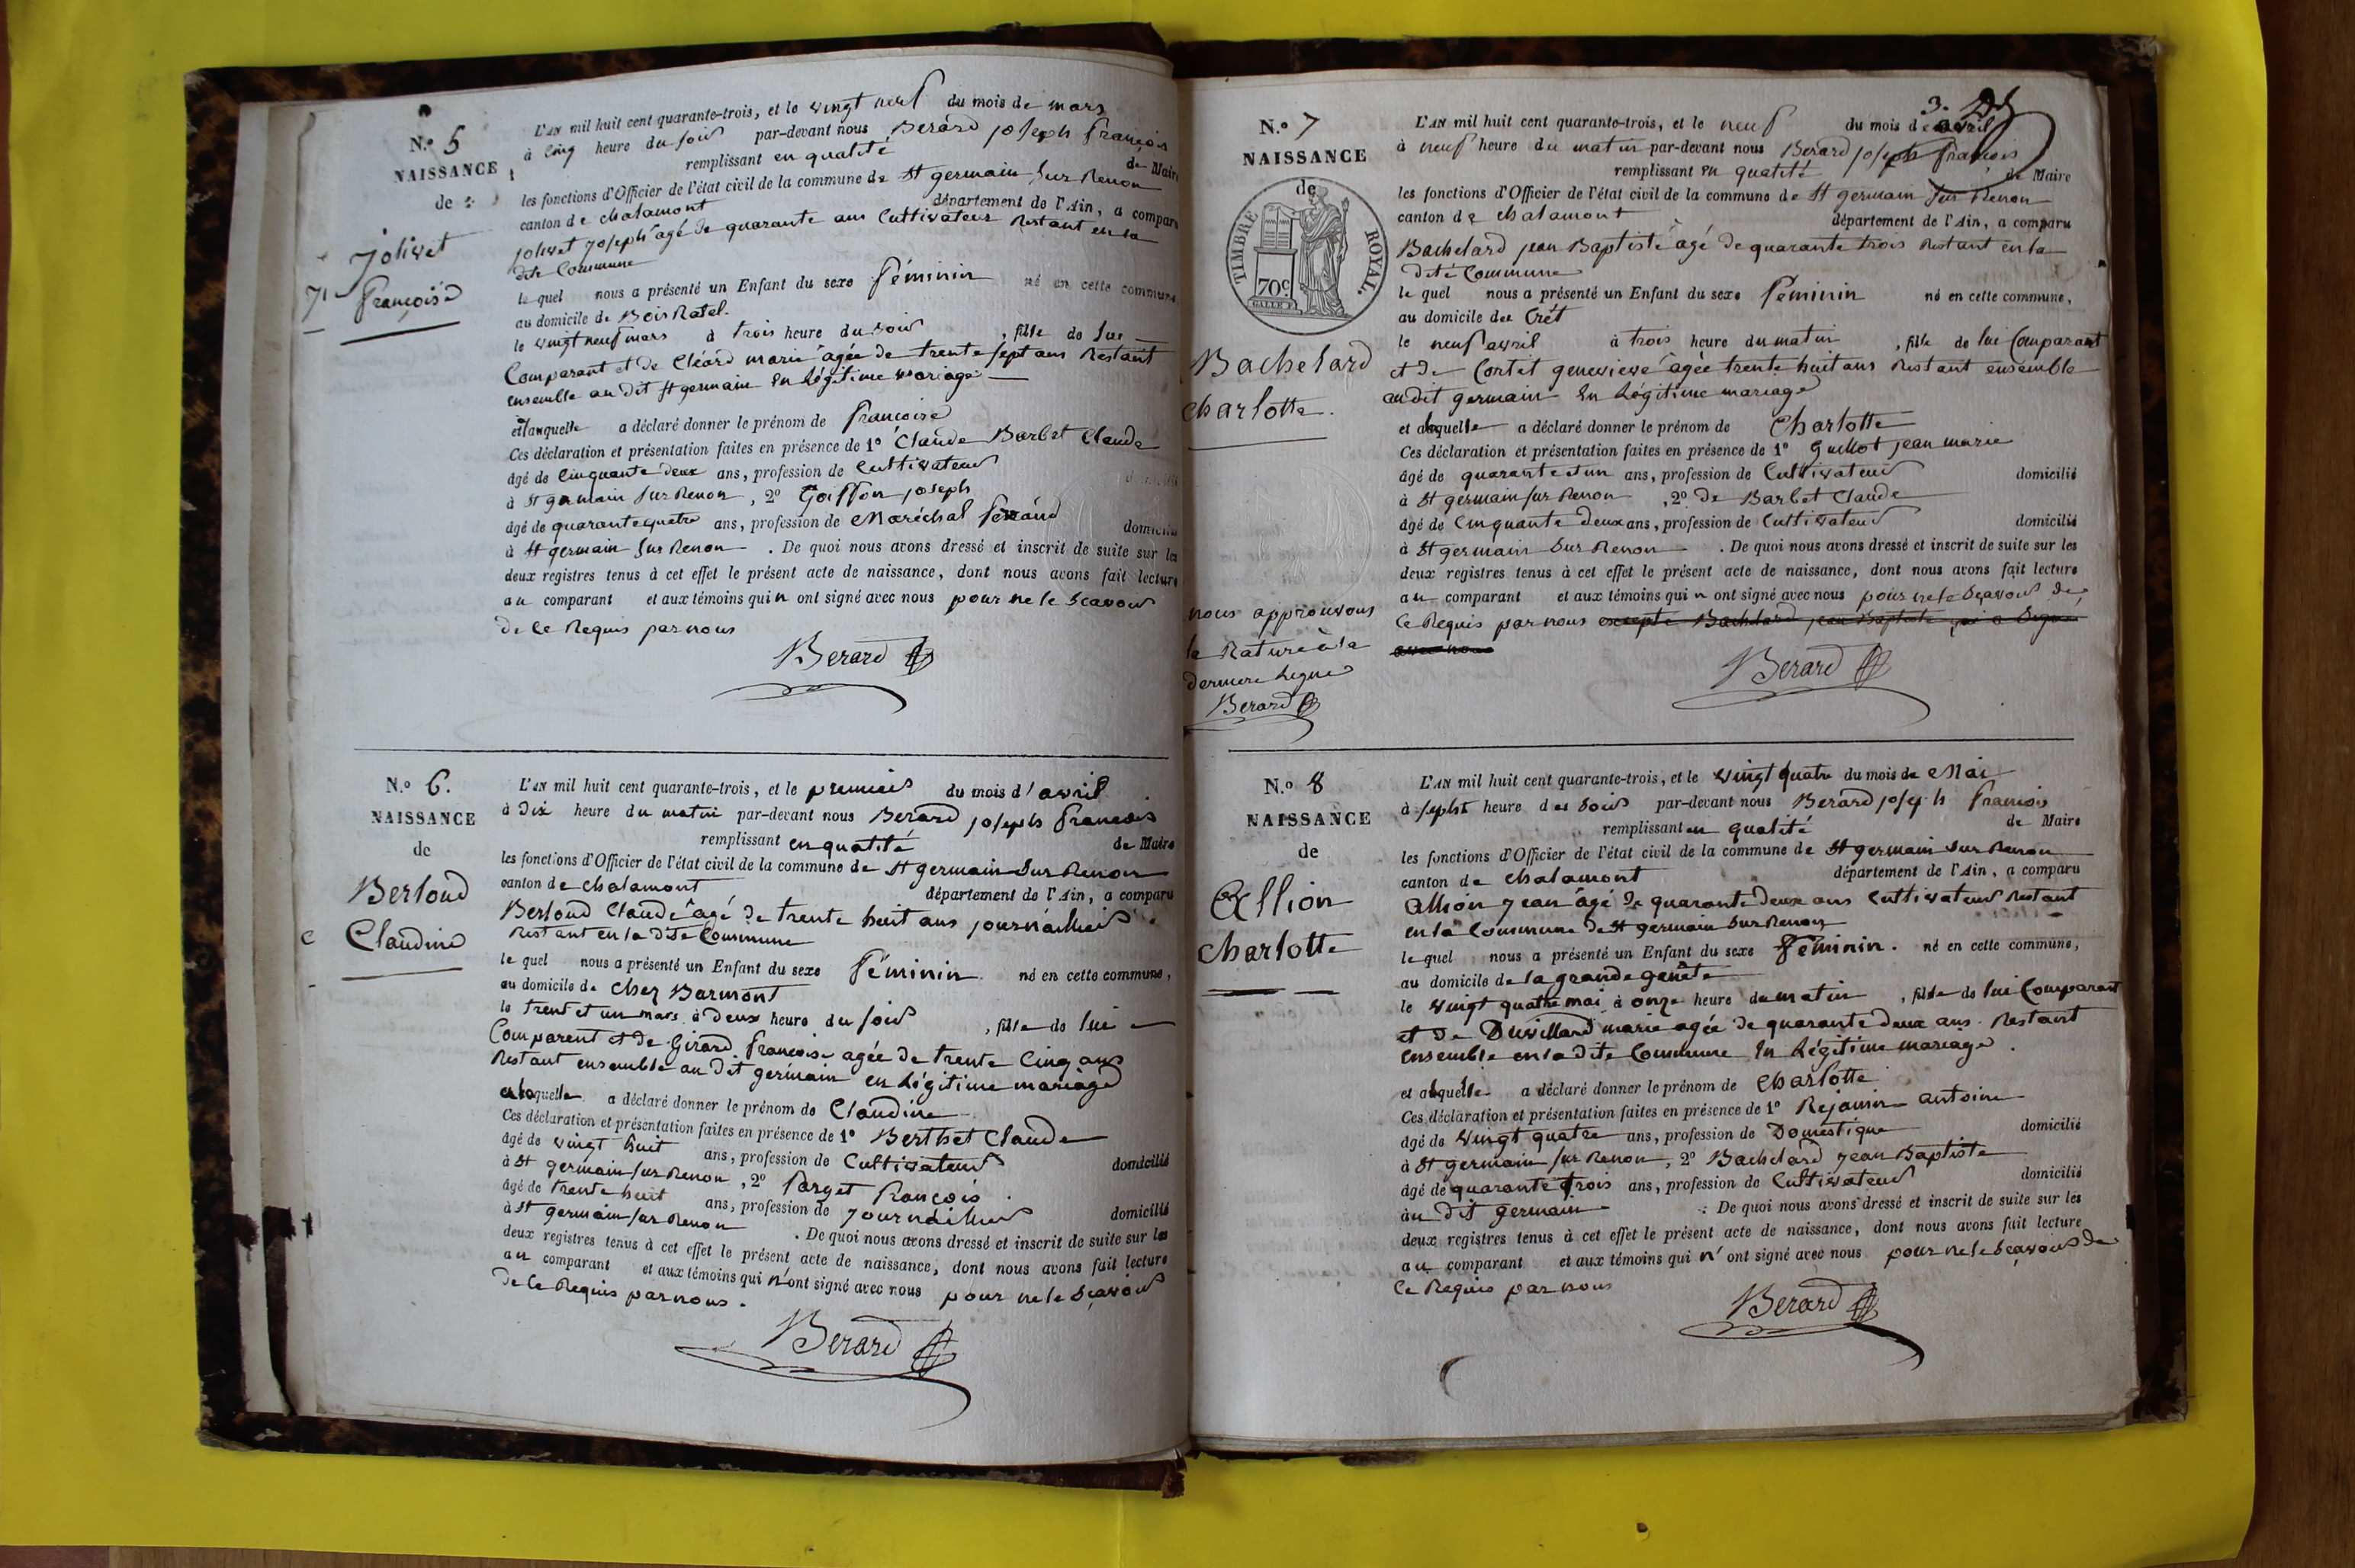 N.° 5
NAISSANCE
de
Jolivet
Françoise
L'AN mil huit cent quarante-trois, et le vingt neuf du mois de mars
à cinq heure du soir par-devant nous Berard joseph françois
remplissant en qualité de Maire
les fonctions d'Officier de l'état civil de la commune de St germain sur Renon
canton de chalamont département de l'Ain, a comparu
jolivet joseph agé de quarante ans Cultivateur Restant en la
dite Commune
le quel nous a présenté un Enfant du sexe féminin né en cette commune
au domicile de Bois Ratel.
le vingt neuf mars à trois heure du soir, fille de lui
Comparant et de Cléard marie agée de trente sept ans Restant
ensemble au dit st germain En légitime mariage
et lauquelle a déclaré donner le prénom de françoise
Ces déclaration et présentation faites en présence de 1° Claude Barbet Claude
âgé de Cinquante deux ans, profession de Cultivateur
à St germain sur Renon, 2° Goiffon joseph
âgé de quarante quatre ans, profession de Maréchal domicilié
à St germain sur Renon. De quoi nous avons dressé et inscrit de suite sur les
deux registres tenus à cet effet le présent acte de naissance, dont nous avons fait lecture
au comparant et aux témoins qui n ont signé avec nous pour ne le scavoir
de ce Requis par nous
Berard
N.° 6.
NAISSANCE
de
Berloud
Claudine
L'AN mil huit cent quarante-trois, et le premier du mois d'avril
à Dix heure du matin par-devant nous Berard joseph françois
remplissant en qualité de Maire
les fonctions d'Officier de l'état civil de la commune de St germain Sur Renon
canton de chalamont département de l'Ain, a comparu
Berloud Claude âgé de trente huit ans journailler
Restant en la dite Commune
le quel nous a présenté un Enfant du sexe féminin. né en cette commune,
au domicile de Chez Barmont
le trent et un mars à Deux heure du soir, fille de lui
Comparent et de Girard françoise agée de trente Cinq ans
Restant ensemble au dit germain en légitime mariage
et laquelle a déclaré donner le prénom de Claudine
Ces déclaration et présentation faites en présence de 1° Berthet Claude
âgé de vingt huit ans, profession de Cultivateur domicilié
à St germain sur Renon, 2° farget françois
âgé de trente huit ans, profession de journailler domicilié
à St germain sur Renon. De quoi nous avons dressé et inscrit de suite sur les
deux registres tenus à cet effet le présent acte de naissance, dont nous avons fait lecture
au comparant et aux témoins qui n'ont signé avec nous pour ne le sçavoir
de ce Requis par nous.
Berard
3.
N.° 7
NAISSANCE
de
TIMBRE ROYAL.
70c
Bachelard
Charlotte.
nous approuvons
la Rature à la
dernière ligne
Berard
L'AN mil huit cent quarante-trois, et le neuf du mois d'avril
à neuf heure du matin par-devant nous Berard joseph françois
remplissant en qualité de Maire
les fonctions d'Officier de l'état civil de la commune de St germain sur Renon
canton de chalamont département de l'Ain, a comparu
Bachelard jean Baptiste âgé de quarante trois Restant en la
dite Commune
le quel nous a présenté un Enfant du sexe féminin né en cette commune,
au domicile du Crét
le neuf avril à trois heure du matin, fille de lui Comparant
et de Cortet genevieve âgée trente huit ans Restant ensemble
au dit germain En légitime mariage
et alaquelle a déclaré donner le prénom de Charlotte
Ces déclaration et présentation faites en présence de 1° Guillot jean marie
âgé de quarante et un ans, profession de Cultivateur domicilié
à St germain sur Renon, 2° de Barbet Claude
âgé de Cinquante deux ans, profession de Cultivateur domicilié
à St germain Sur Renon. De quoi nous avons dressé et inscrit de suite sur les
deux registres tenus à cet effet le présent acte de naissance, dont nous avons fait lecture
au comparant et aux témoins qui n ont signé avec nous pour ne le sçavoir de
ce Requis par nous excepté Bachelard jean Baptiste qui a signé
avec nous
Berard
N.° 8
NAISSANCE
de
Allion
Charlotte
L'AN mil huit cent quarante-trois, et le vingt quatre du mois de Mai
à sepht heure du soir par-devant nous Berard joseph françois
remplissant en qualité de Maire
les fonctions d'Officier de l'état civil de la commune de St germain sur Renon
canton de chalamont département de l'Ain, a comparu
Allion jean âgé de quarante deux ans Cultivateur Restant
en la Commune de St germain sur Renon
le quel nous a présenté un Enfant du sexe féminin. né en cette commune,
au domicile de la grande genête
le vingt quatre mai à onze heure du matin, fille de lui Comparant
et de Duvillard marie agée de quarante deux ans Restant
ensemble en la dite Commune En légitime mariage.
et alaquelle a déclaré donner le prénom de Charlotte
Ces déclaration et présentation faites en présence de 1° Rejamin antoine
âgé de vingt quatre ans, profession de Domestique domicilié
à St germain sur Renon, 2° Bachelard jean Baptiste
âgé de quarante trois ans, profession de Cultivateur domicilié
au dit germain. De quoi nous avons dressé et inscrit de suite sur les
deux registres tenus à cet effet le présent acte de naissance, dont nous avons fait lecture
au comparant et aux témoins qui n'ont signé avec nous pour ne le sçavoir de
ce Requis par nous
Berard